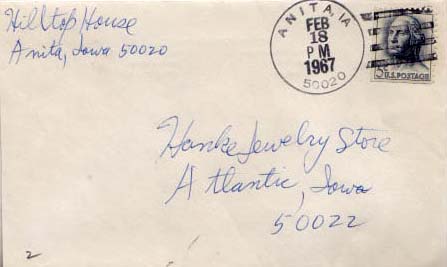 Hilltop House
Anita, Iowa 50020
ANITA, IA
FEB
18
PM
1967
50020
5¢ U.S. POSTAGE
Hanke Jewelry Store
Atlantic, Iowa
50022
2